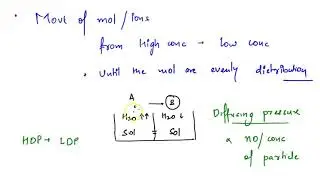 • Movt of mol/ions
from high conc → low conc
• Until the mol are evenly distribution
A → B
H₂O ↑↑ | H₂O ↓
Sol = Sol
HDP → LDP
Diffusing pressure
∝ no/conc
of particle